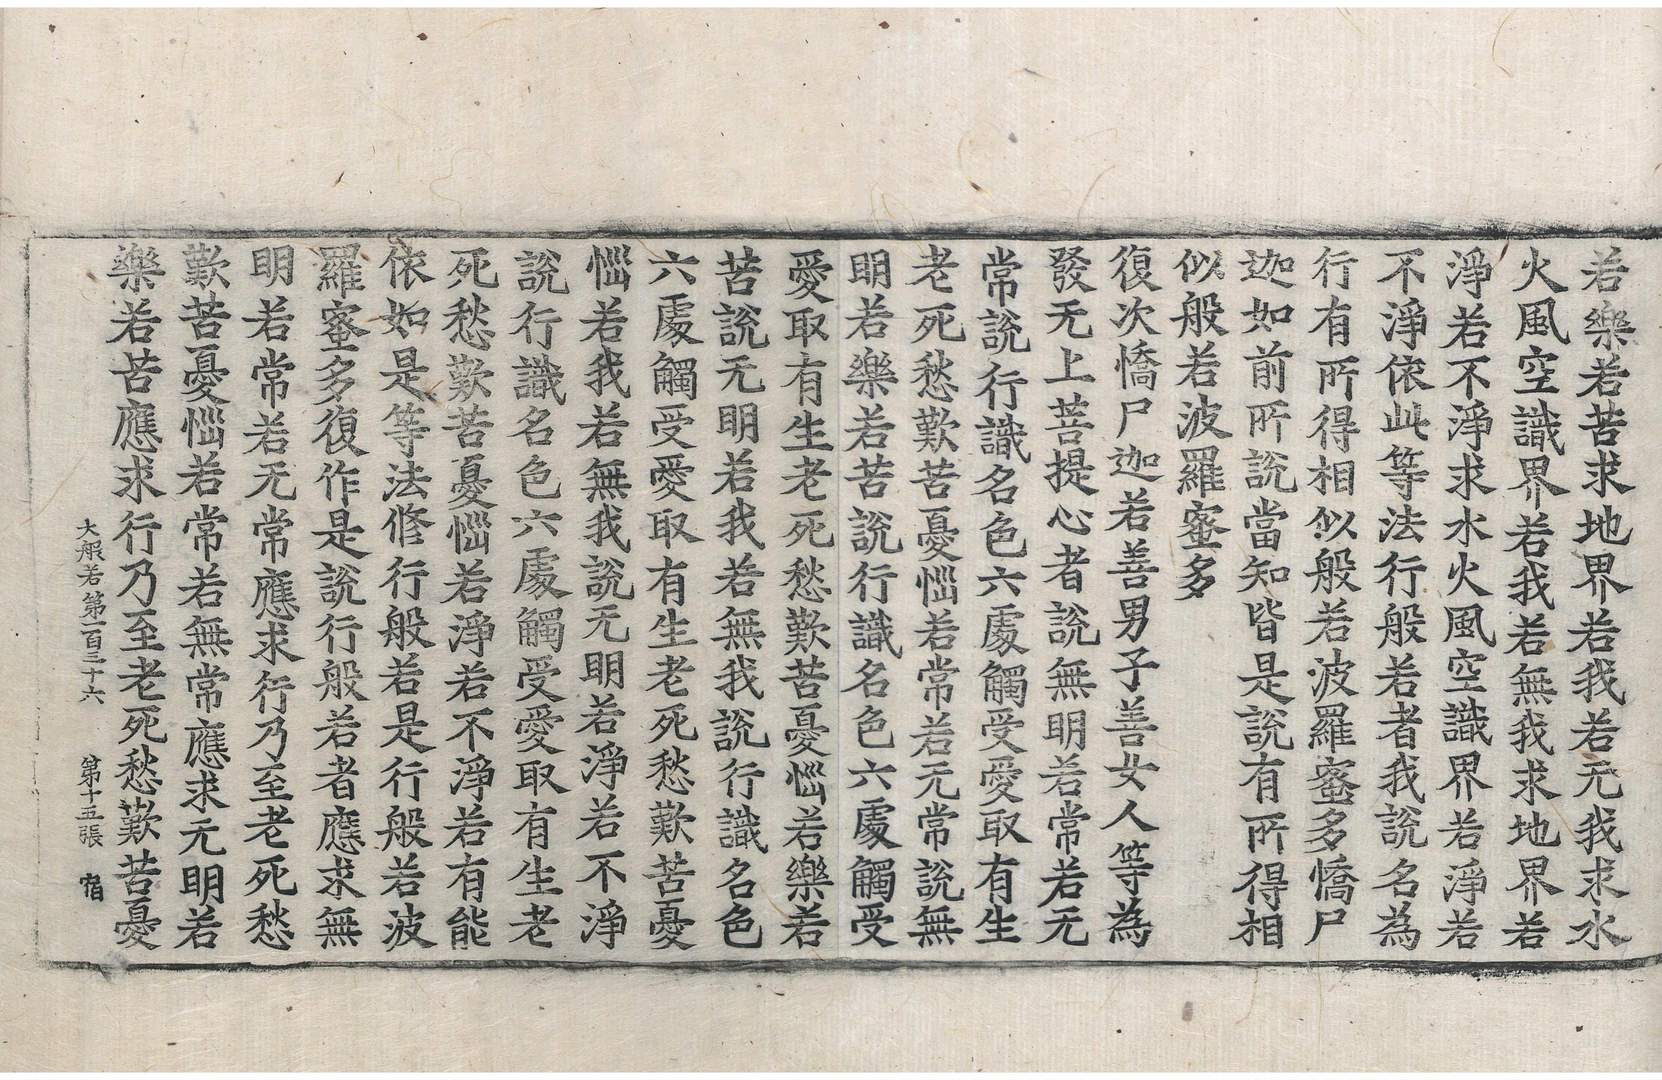 若樂若苦求地界若我若无我求水
火風空識界若我若無我求地界若
淨若不淨求水火風空識界若淨若
不淨依此等法行般若者我說名為
行有所得相似般若波羅蜜多憍尸
迦如前所說當知皆是說有所得相
似般若波羅蜜多
復次憍尸迦若善男子善女人等為
發无上菩提心者說無明若常若无
常說行識名色六處觸受愛取有生
老死愁歎苦憂惱若常若无常說無
明若樂若苦說行識名色六處觸受
愛取有生老死愁歎苦憂惱若樂若
苦說无明若我若無我說行識名色
六處觸受愛取有生老死愁歎苦憂
惱若我若無我說无明若淨若不淨
說行識名色六處觸受愛取有生老
死愁歎苦憂惱若淨若不淨若有能
依如是等法修行般若是行般若波
羅蜜多復作是說行般若者應求無
明若常若无常應求行乃至老死愁
歎苦憂惱若常若無常應求无明若
樂若苦應求行乃至老死愁歎苦憂
大般若第一百三十六 第十五張 宿